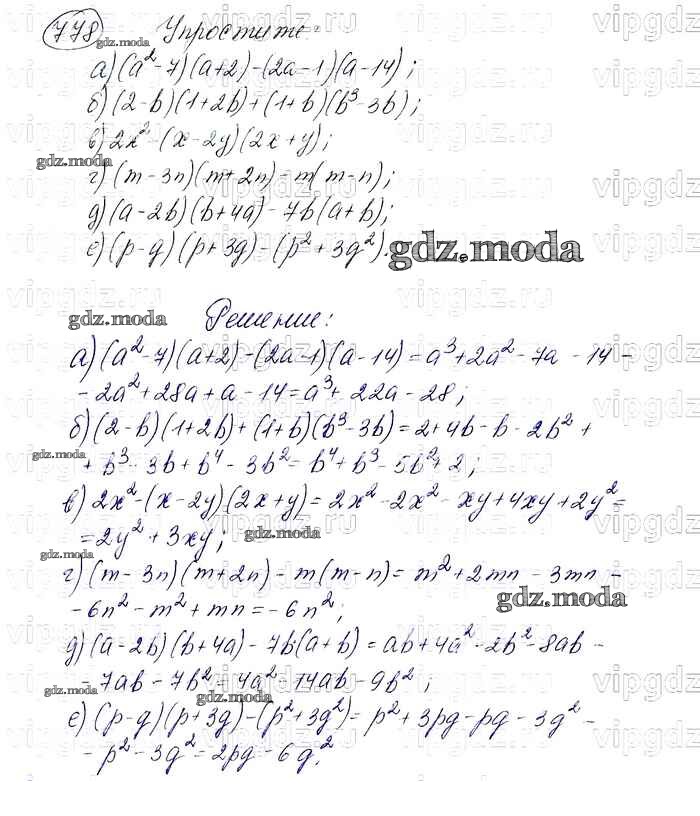 778 Упростите:
а) (a² - 7)(a + 2) - (2a - 1)(a - 14);
б) (2 - b)(1 + 2b) + (1 + b)(b³ - 3b);
в) 2x² - (x - 2y)(2x + y);
г) (m - 3n)(m + 2n) - m(m - n);
д) (a - 2b)(b + 4a) - 7b(a + b);
е) (p - q)(p + 3q) - (p² + 3q²).
Решение:
а) (a² - 7)(a + 2) - (2a - 1)(a - 14) = a³ + 2a² - 7a - 14 -
- 2a² + 28a + a - 14 = a³ + 22a - 28;
б) (2 - b)(1 + 2b) + (1 + b)(b³ - 3b) = 2 + 4b - b - 2b² +
+ b³ - 3b + b⁴ - 3b² = b⁴ + b³ - 5b² + 2;
в) 2x² - (x - 2y)(2x + y) = 2x² - 2x² - xy + 4xy + 2y² =
= 2y² + 3xy;
г) (m - 3n)(m + 2n) - m(m - n) = m² + 2mn - 3mn -
- 6n² - m² + mn = - 6n²;
д) (a - 2b)(b + 4a) - 7b(a + b) = ab + 4a² - 2b² - 8ab -
- 7ab - 7b² = 4a² - 14ab - 9b²;
е) (p - q)(p + 3q) - (p² + 3q²) = p² + 3pq - pq - 3q² -
- p² - 3q² = 2pq - 6q².
gdz.moda
vipgdz.ru